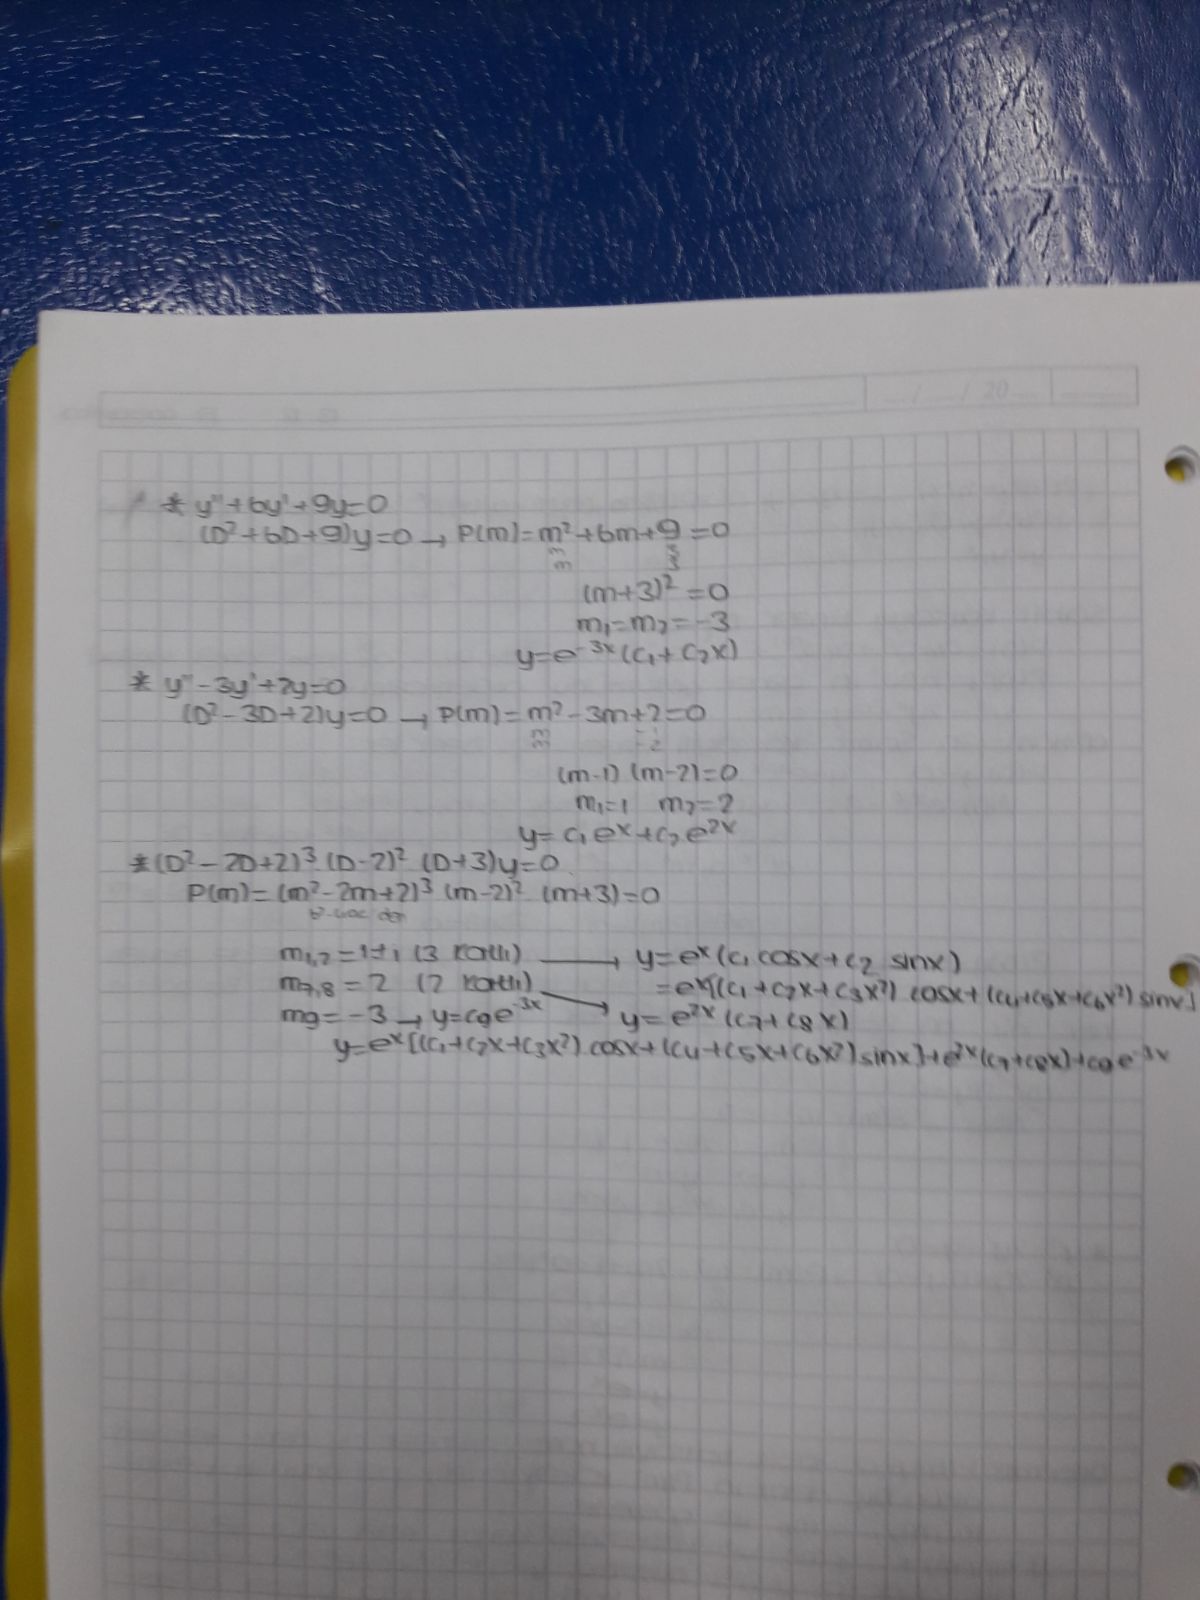 .../.../20...
* y'' + 6y' + 9y = 0
(D² + 6D + 9)y = 0 → P(m) = m² + 6m + 9 = 0
m 3
m 3
(m+3)² = 0
m₁ = m₂ = -3
y = e⁻³ˣ (c₁ + c₂x)
* y'' - 3y' + 2y = 0
(D² - 3D + 2)y = 0 → P(m) = m² - 3m + 2 = 0
m -1
m -2
(m-1) (m-2) = 0
m₁ = 1 m₂ = 2
y = c₁eˣ + c₂e²ˣ
* (D² - 2D + 2)³ (D-2)² (D+3)y = 0
P(m) = (m² - 2m + 2)³ (m-2)² (m+3) = 0
b²-4ac den
m₁,₂ = 1±i (3 katlı) → y = eˣ (c₁ cosx + c₂ sinx)
m₇,₈ = 2 (2 katlı) = eˣ[(c₁ + c₂x + c₃x²) cosx + (c₄ + c₅x + c₆x²) sinx]
m₉ = -3 → y = c₉e⁻³ˣ → y = e²ˣ (c₇ + c₈x)
y = eˣ[(c₁ + c₂x + c₃x²) cosx + (c₄ + c₅x + c₆x²) sinx] + e²ˣ(c₇ + c₈x) + c₉e⁻³ˣ